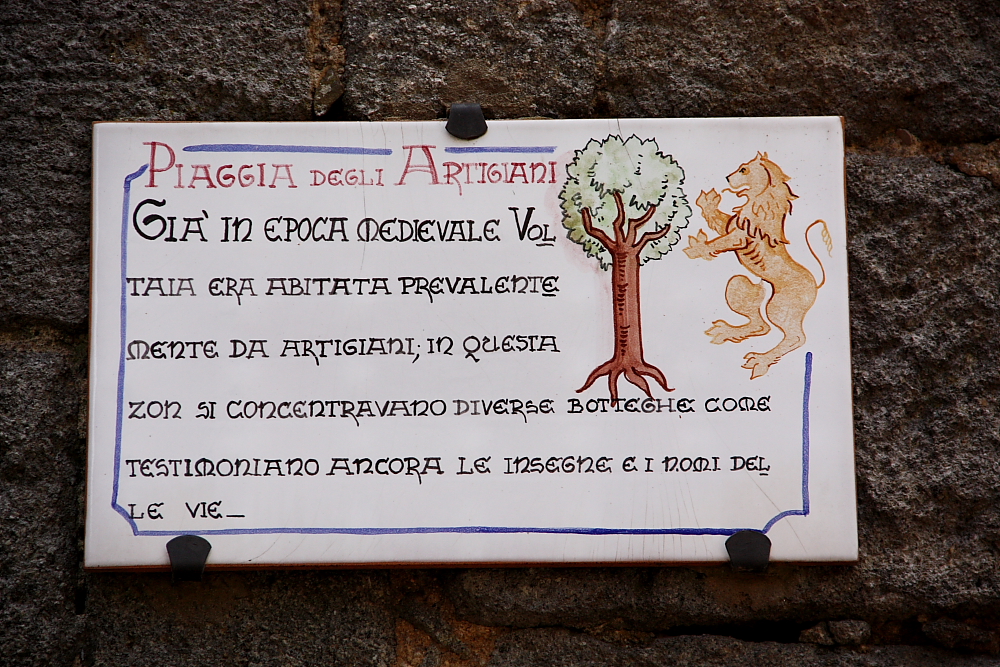 PIAGGIA DEGLI ARTIGIANI
GIA' IN EPOCA MEDIEVALE VOL
TAIA ERA ABITATA PREVALENTE
MENTE DA ARTIGIANI; IN QUESTA
ZON SI CONCENTRAVANO DIVERSE BOTTEGHE COME
TESTIMONIANO ANCORA LE INSEGNE E I NOMI DEL
LE VIE_